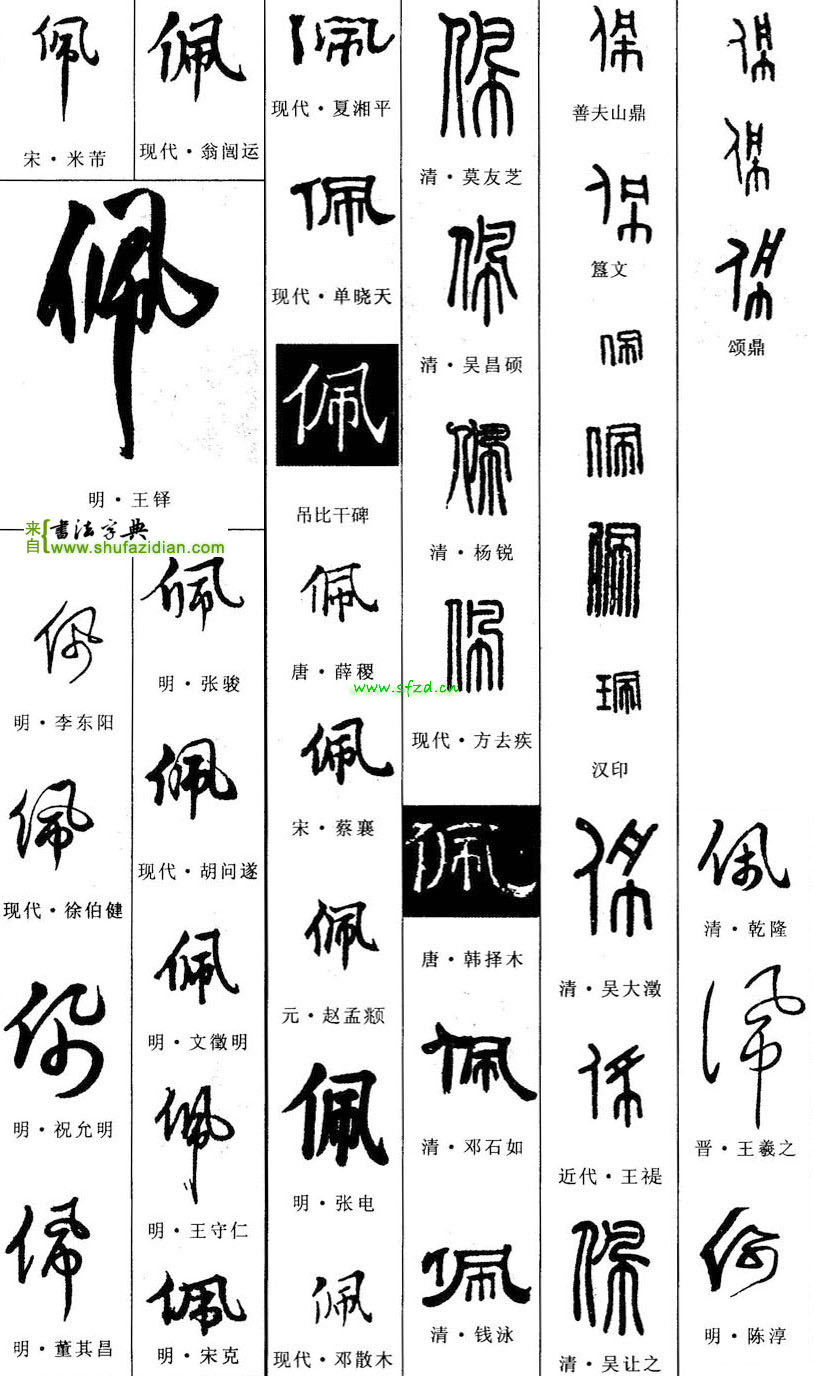 佩
宋·米芾
佩
现代·翁闿运
佩
明·王铎
来自{書法字典
www.shufazidian.com
佩
明·李东阳
佩
现代·徐伯健
佩
明·祝允明
佩
明·董其昌
佩
明·张骏
佩
现代·胡问遂
佩
明·文徵明
佩
明·王守仁
佩
明·宋克
佩
现代·夏湘平
佩
现代·单晓天
佩
吊比干碑
佩
唐·薛稷
www.sfzd.cn
佩
宋·蔡襄
佩
元·赵孟頫
佩
明·张电
佩
现代·邓散木
佩
清·莫友芝
佩
清·吴昌硕
佩
清·杨锐
佩
现代·方去疾
佩
唐·韩择木
佩
清·邓石如
佩
清·钱泳
佩
善夫山鼎
佩
簋文
佩
佩
佩
珮
汉印
佩
清·吴大澂
佩
近代·王褆
佩
清·吴让之
佩
佩
佩
颂鼎
佩
清·乾隆
佩
晋·王羲之
佩
明·陈淳